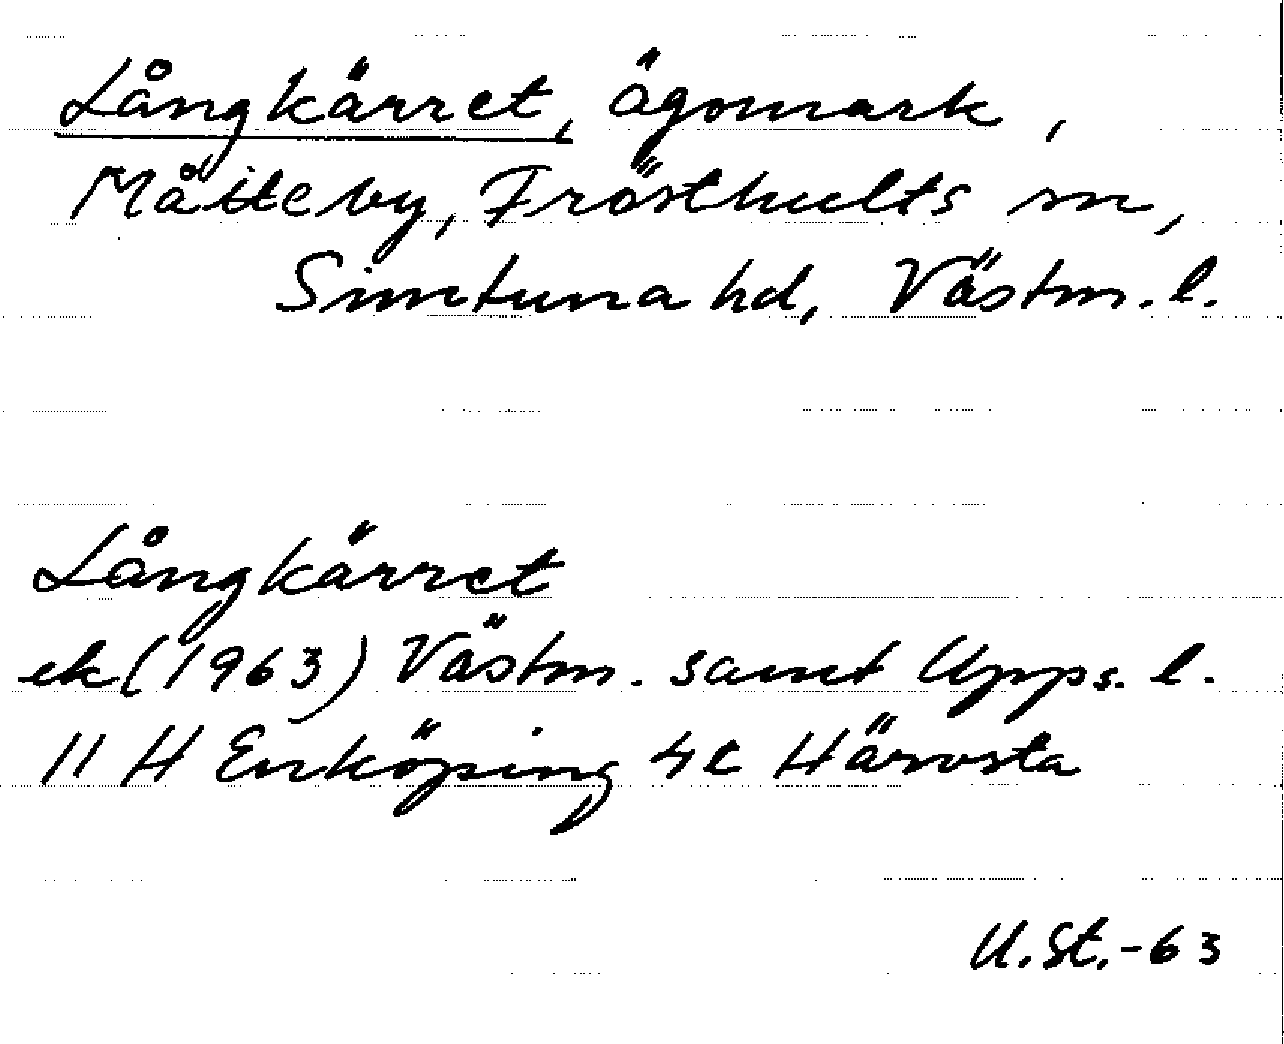 Långkärret, ägomark,
Måtteby, Frösthults sn,
Simtuna hd, Västm. l.
Långkärret
ek (1963) Västm. samt Upps. l.
11 H Enköping 4c Härvsta
U.St.-63